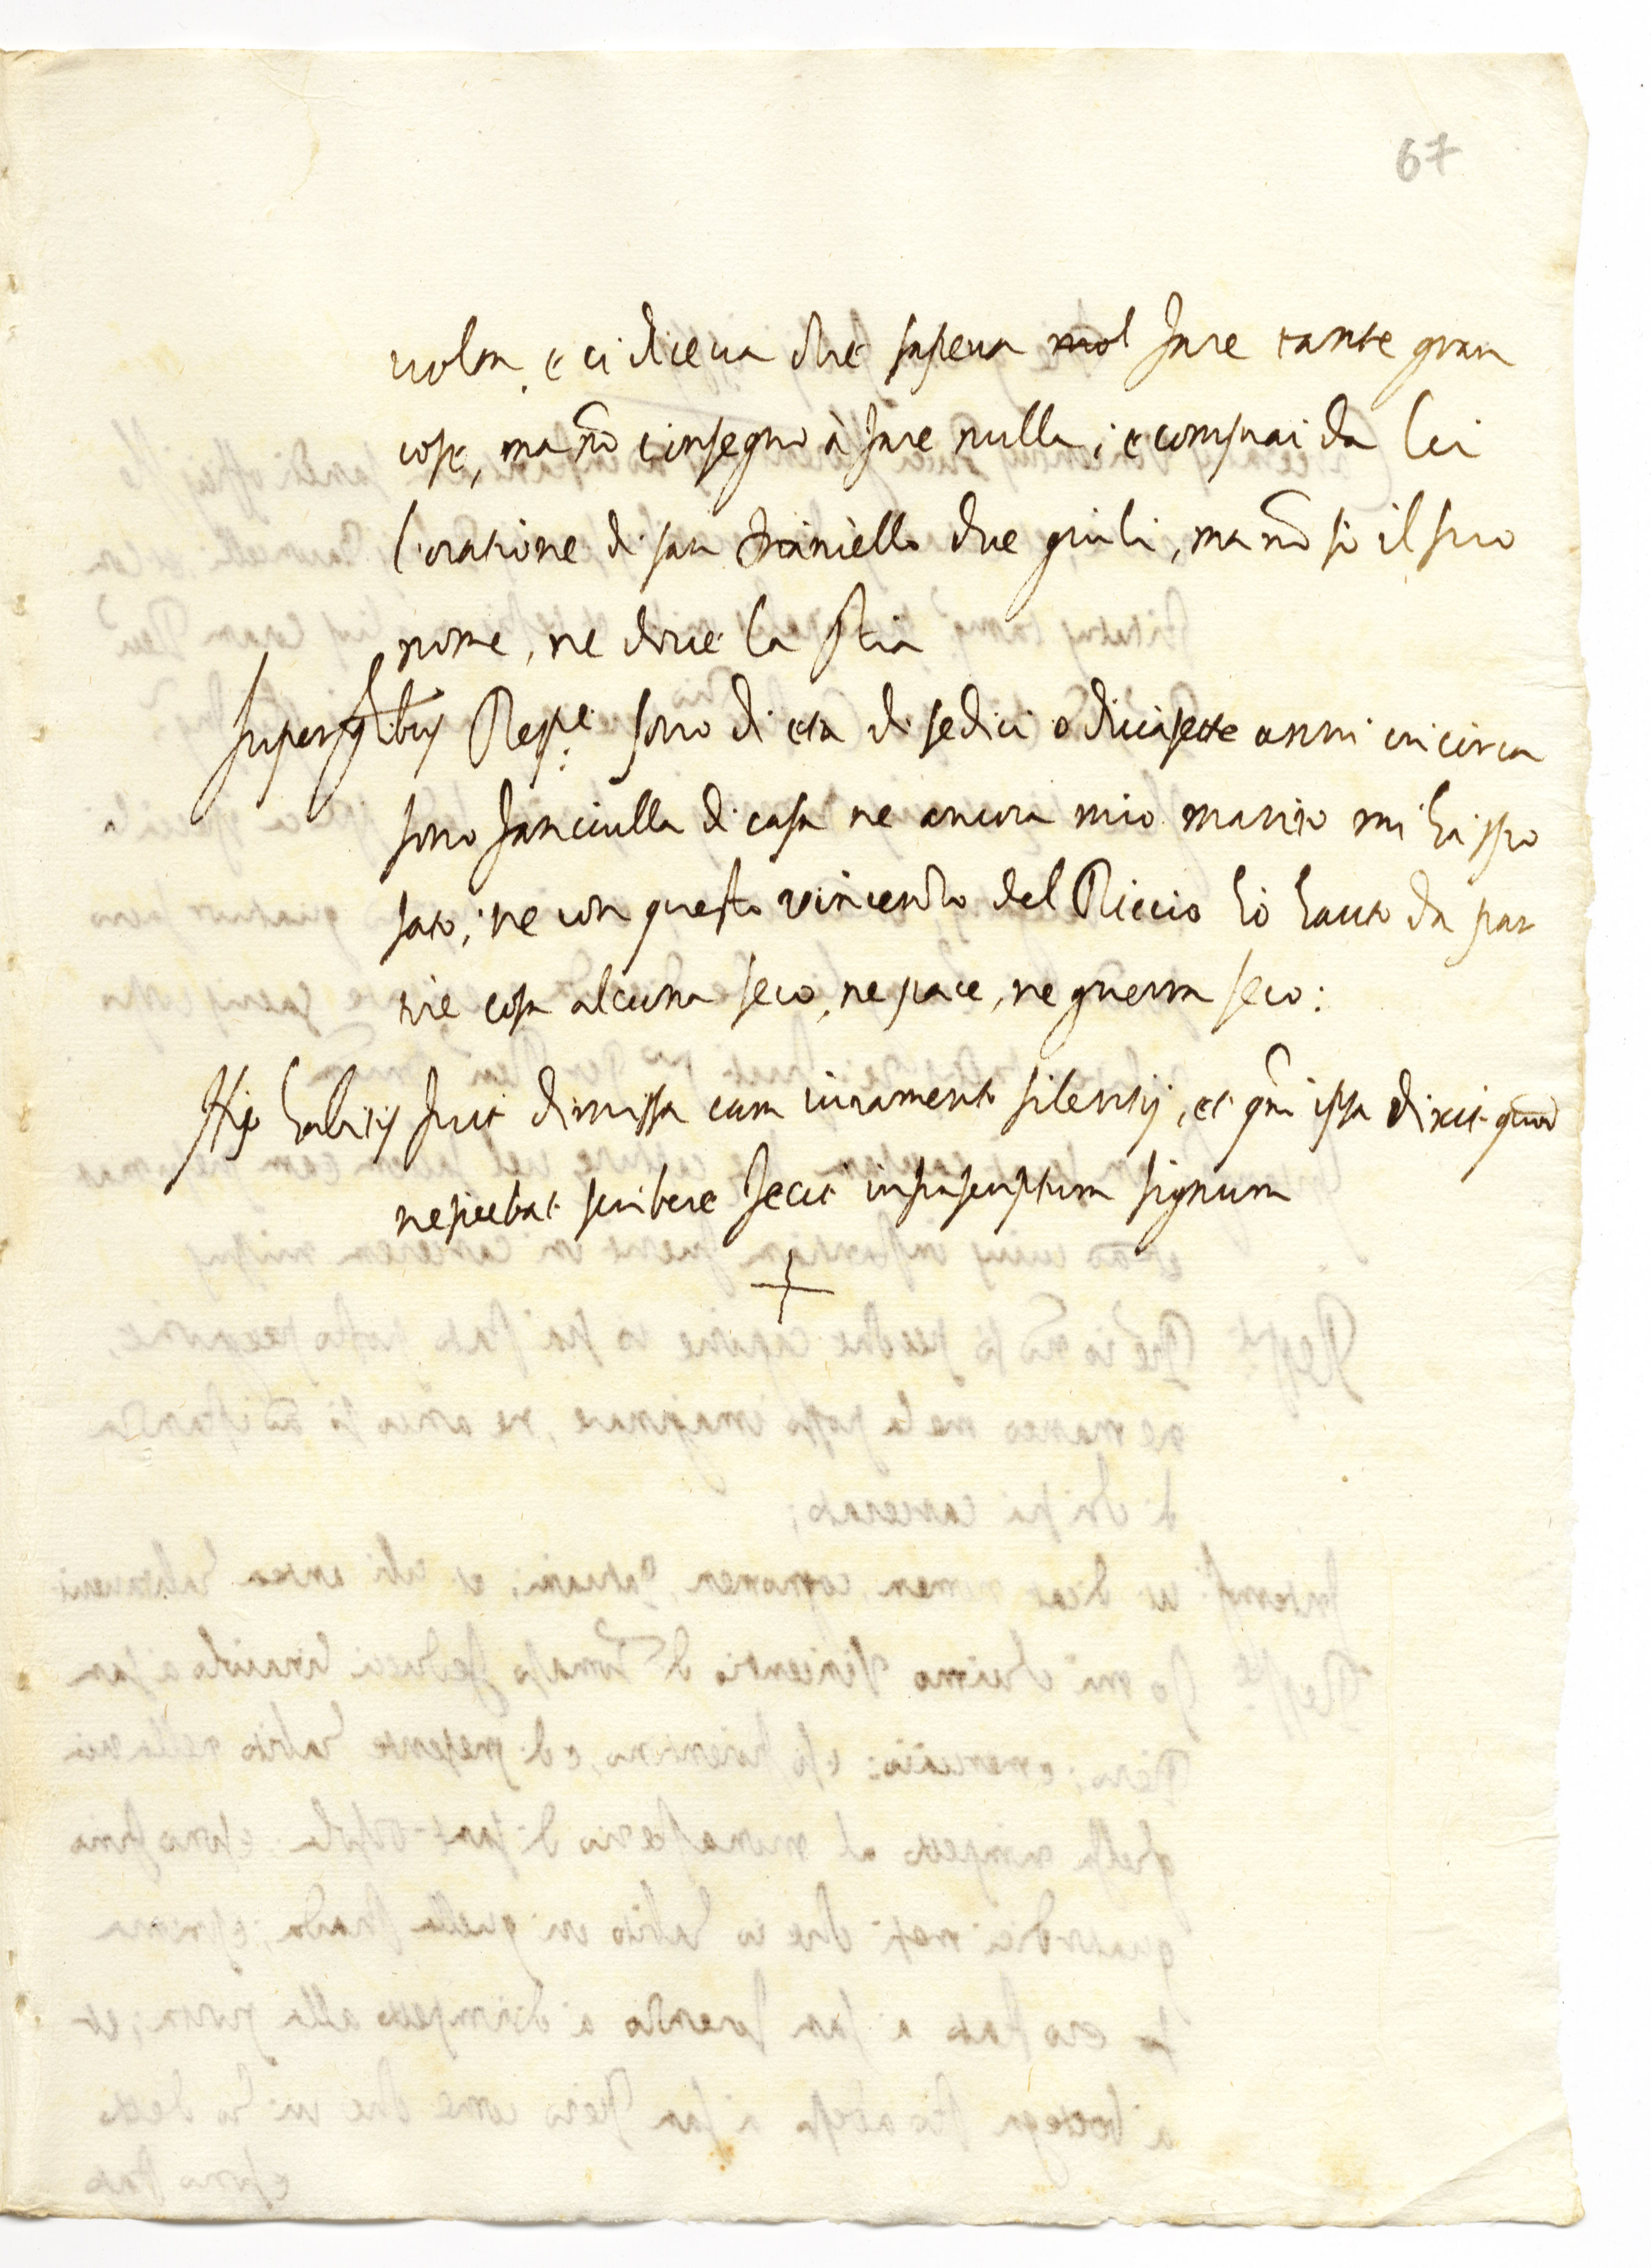 67
volta, e ci diceua che sapeua mol fare tante gran
cose, ma nõ c'insegnò à fare nulla; e comprai da lei
l'oratione di san Daniello due giuli, ma nõ sò il suo
nome, ne doue la stia
super gñalibus Resp.t sono di età di sedici o diciasette anni incirca
sono fanciulla di casa ne ancora mio marito mi hà spo
sato; ne con questo vincentio del Riccio hò hauto da par
tire cosa alcuna seco, ne pace, ne guerra seco:
His habitis fuit dimissa cum iuramento silentij, et qm̃ ipsa dixit quod
nesciebat scribere fecit infrascriptum signum
+